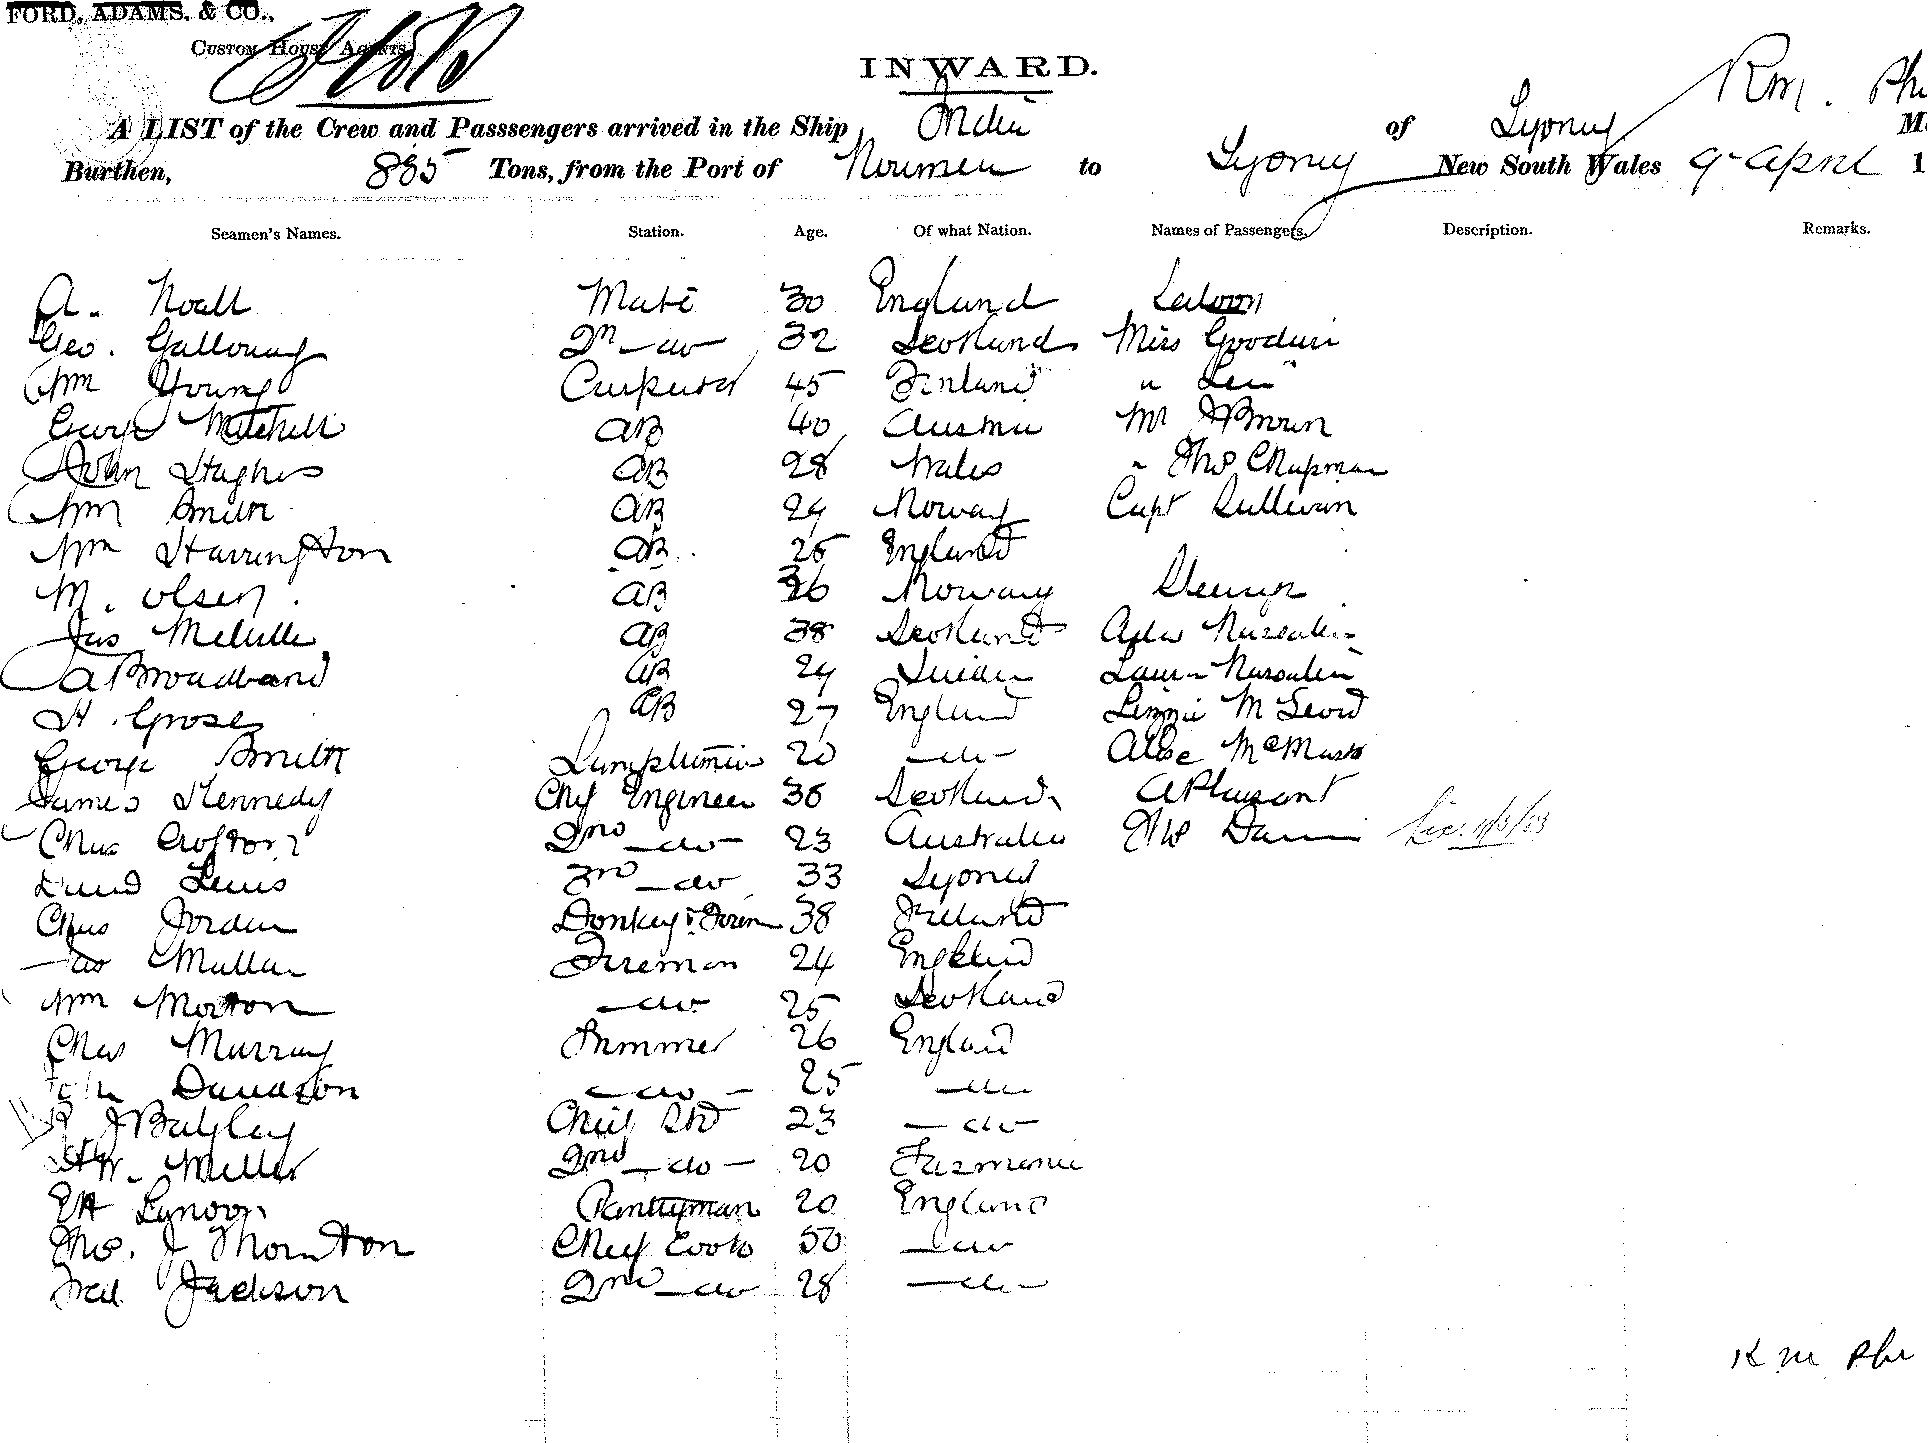 FORD, ADAMS, & CO.,
CUSTOM HOUSE AGENTS
INWARD.
Rm.
A LIST of the Crew and Passsengers arrived in the Ship India of Sydney
Burthen, 885 Tons, from the Port of Noumea to Sydney New South Wales 9 April 1
Seamen's Names. Station. Age. Of what Nation. Names of Passengers. Description. Remarks.
A. Noall Mate 30 England Saloon
Geo. Galloway 2nd do 32 Scotland Miss Goodwin
Wm Young Carpenter 45 Finland "
George Mitchell AB 40 Austria Mr J Brown
John Hughes AB 28 Wales " Thos Chapman
Wm Smith AB 24 Norway Capt Sullivan
Wm Harrington AB 25 England
M. Olsen AB 26 Norway Steerage
Jas Melville AB 38 Scotland Ada
A Broadband AB 24 Laura
H. Grose AB 27 England Linnie McLeod
George Smith Lamptrimmer 20 do Alice McMaster
James Kennedy Chf Engineer 36 Scotland A Pleasant
Chas Crofton 2nd do 23 Australia Thos
David Lewis 3rd do 33 Sydney
Chas Jordan Donkey 38 Ireland
do Mullan Fireman 24 England
Wm Morton do 25 Scotland
Chas Murray Trimmer 26 England
John Davidson do 25 do
R J Bayley Chief Std 23 do
H W. Miller 2nd do 20 Tasmania
E H Lyndon Pantryman 20 England
Thos. J Thornton Chief Cook 50 do
Fred Jackson 2nd do 28 do
R M